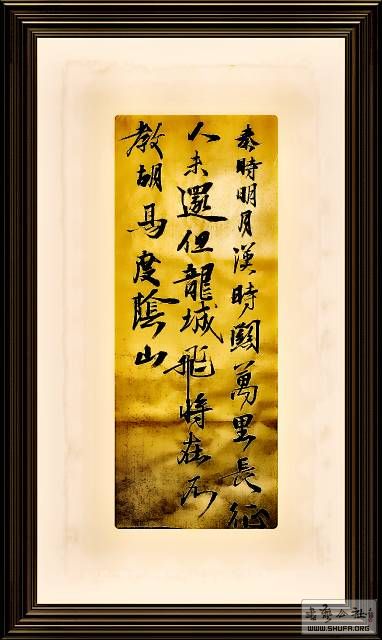 秦時明月漢時關萬里長征
人未還但龍城飛將在不
教胡馬度陰山
WWW.SHUFA.ORG